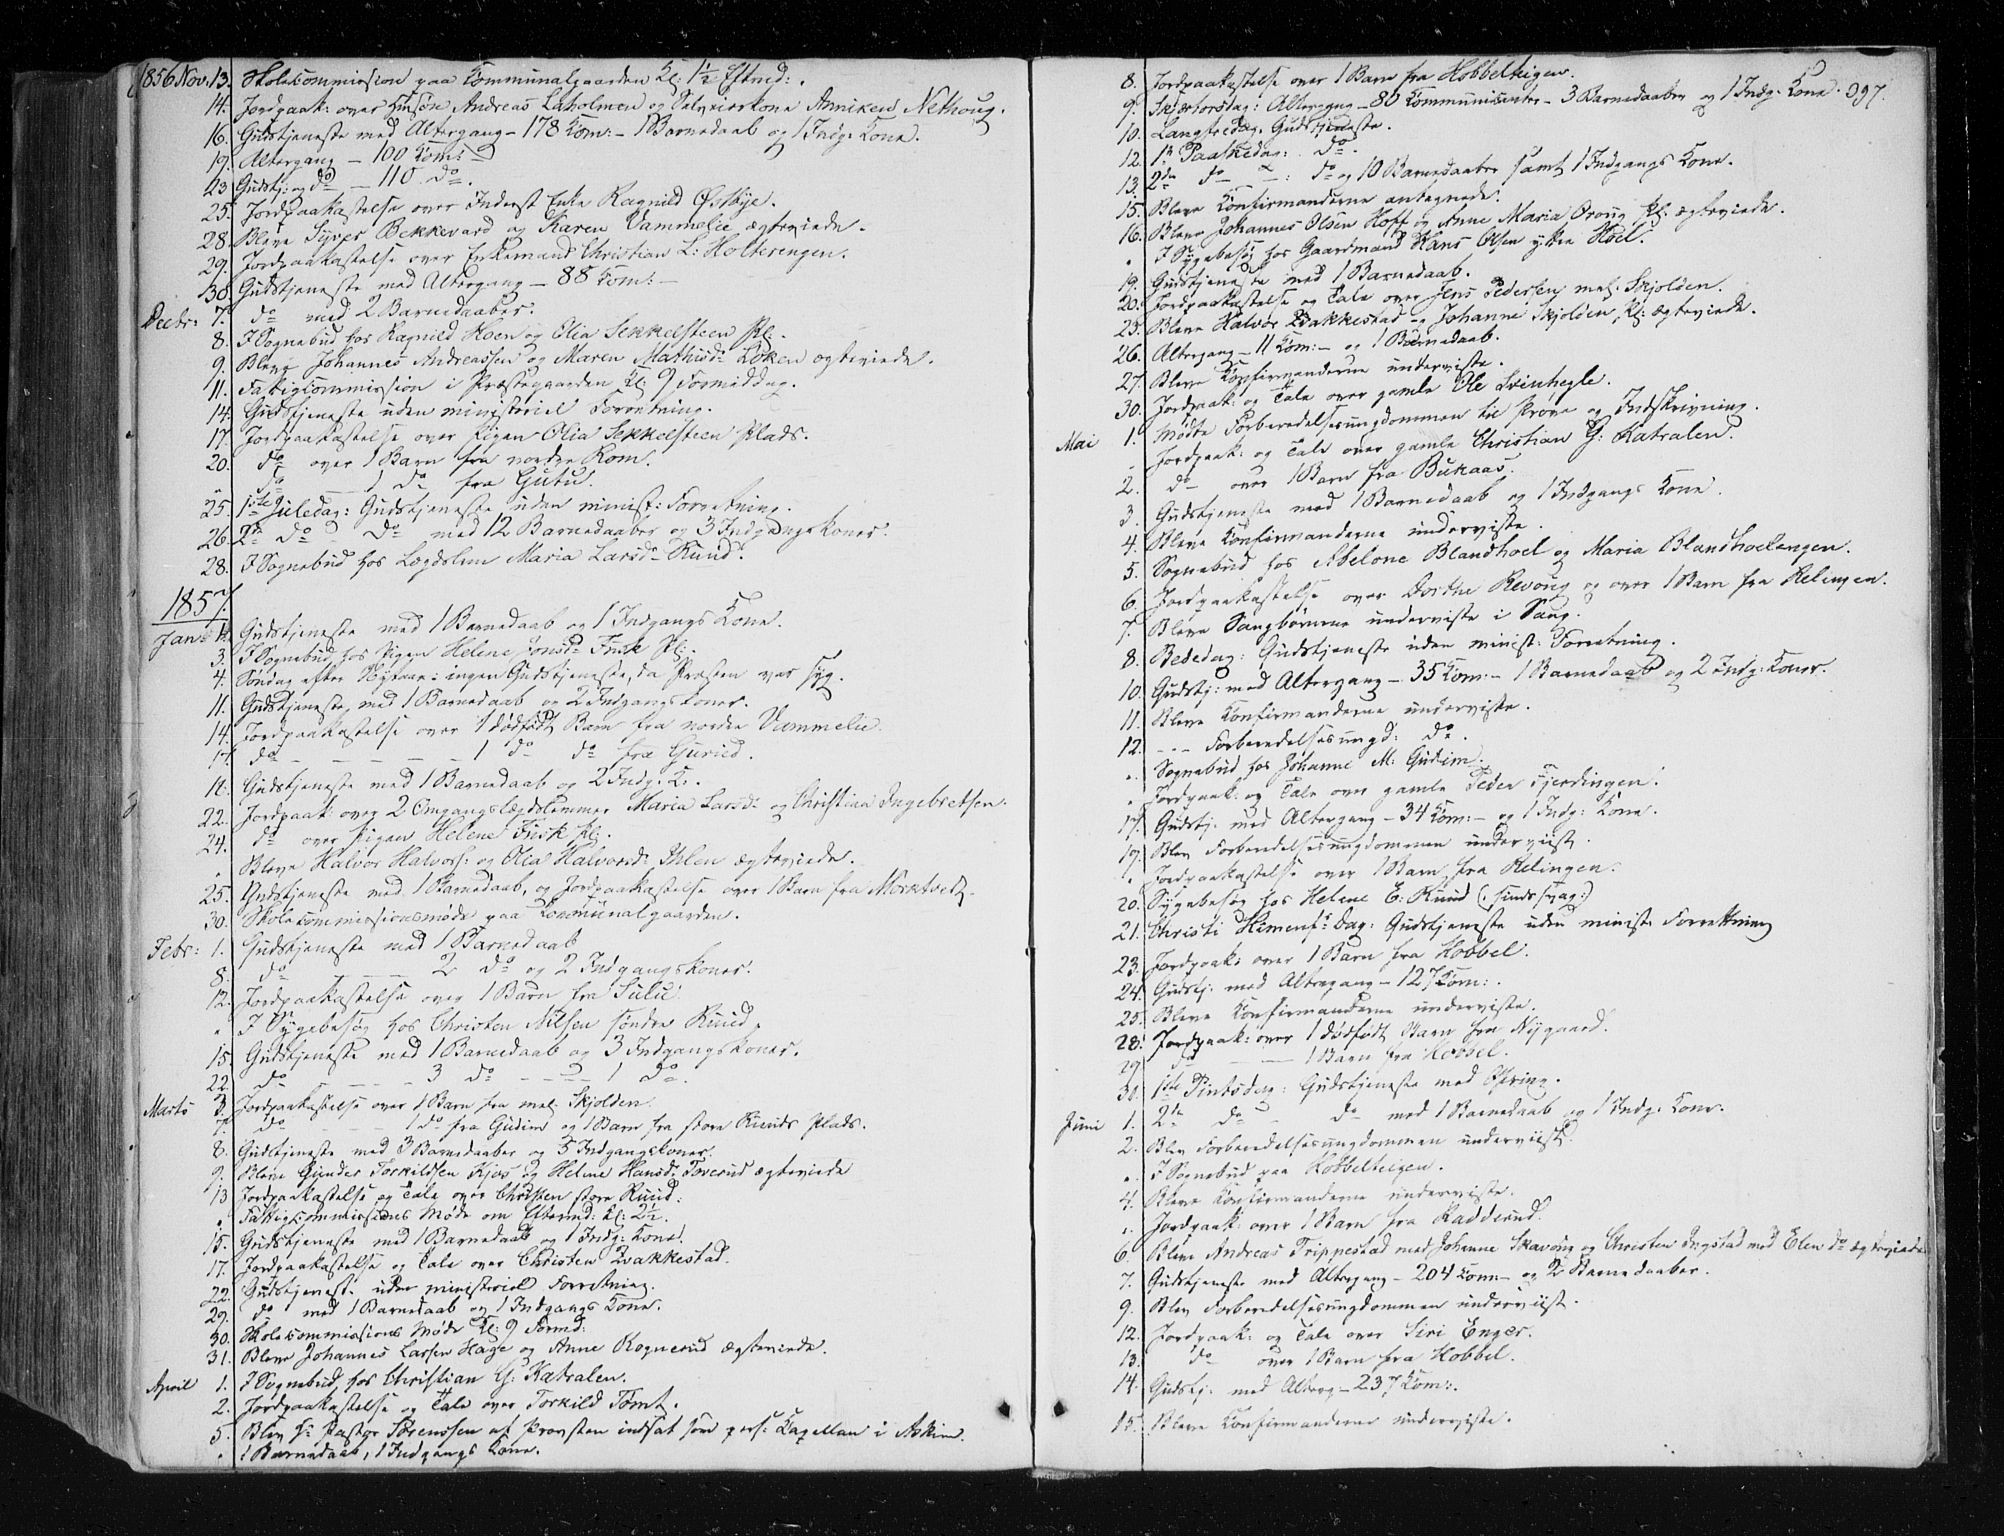 1856 Nov. 13. Skolecommission paa Communalgaarden Kl: 1½ Eftmd: .
14. Jordpaak: over Andreas Laholmen og Anniken Nethoug.
16. Gudstjeneste med Altergang – 178 Com: – 1 Barnedaab og 1 Indg: Kone.
19. Altergang – 100 Com: –
23. Gudstj: og do – 110 do.
25. Jordpaakastelse over Inderst Enke Ragnild Østbye.
28. Bleve Syver Bekkevard og Karen Vammelie ægteviede.
29. Jordpaakastelse over Enkemand Christian L: Holterengen.
30. Gudstjeneste med Altergang – 88 Com: –
Decbr: 7. do med 2 Barnedaaber.
8. I Sognebud hos Ragnild Hoen og Olia Sekkelsteen Pl: .
9. Bleve Johannes Andreassen og Maren Mathisd: Løken ægteviede.
11. Fattigcommission i Præstegaarden Kl: 9 Formiddag.
14. Gudstjeneste uden ministeriel Forretning.
17. Jordpaakastelse over Pigen Olia Sekkelsteen Plads.
20. do over 1 Barn fra nordre Rom.
" do – 1 do fra Gutu.
25. 1ste Juledag: Gudstjeneste uden minist: Forretning.
26. 2den do do med 12 Barnedaaber og 3 Indgangskoner.
28. I Sognebud hos Lægdslem Maria Larsd: Ruud.
1857.
Jan: 1. Gudstjeneste med 1 Barnedaab og 1 Indgangs Kone.
3. I Sognebud hos Pigen Helene Jonsd: Fusk Pl: .
4. Søndag efter Nytaar: ingen Gudstjeneste, da Præsten var syg.
11. Gudstjeneste med 1 Barnedaab og 2 Indgangskoner.
14. Jordpaakastelse over 1 dødfødt Barn fra nordre Vammelie.
17. do – – – – 1 do do fra Guried.
18. Gudstjeneste med 1 Barnedaab og 2 Indg: K: .
22. Jordpaak: over 2 Omgangslægdslemmer Maria Larsd: og Christian Ingebretsen.
24. do over Pigen Helene Fusk Pl: .
" Bleve Halvor Halvors: og Olia Halvorsd: Ihlen ægteviede.
25. Gudstjeneste med 1 Barnedaab, og Jordpaakastelse over 1 Barn fra Morktvedt.
30. Skolecommissionsmøde paa Communalgaarden.
Febr: 1. Gudstjeneste med 1 Barnedaab
8. do – – – 2 do og 2 Indgangskoner.
12. Jordpaakastelse over 1 Barn fra Sulu.
" I Sygebesøg hos Christen Nilsen søndre Ruud.
15. Gudstjeneste med 1 Barnedaab og 3 Indgangskoner.
22. do – – – – 3 do – – – 1 do.
Marts 3. Jordpaakastelse over 1 Barn fra mel: Skjolden.
7. do – – – 1 do fra Gudim og 1 Barn fra store Ruuds Plads.
8. Gudstjeneste med 3 Barnedaaber og 5 Indgangskoner.
9. Bleve Gunder Torkildsen Kjos og Helene Hansd: Toverud ægteviede
13. Jordpaakastelse og Tale over Christen store Ruud:
" Fattigcommissions Møde om Eftermd: Kl: 2½.
15. Gudstjeneste med 1 Barnedaab og 1 Indg: Kone.
17. Jordpaakastelse og Tale over Christen Bakkestad.
22. Gudstjeneste uden ministeriel Forretning.
29. do med 1 Barnedaab og 1 Indgangs Kone.
30. Skolecommissions Møde Kl: 9 Formd:
31. Bleve Johannes Larsen Hage og Anne Rognerud ægteviede.
April 1. I Sognebud hos Christian G: Katralen.
2. Jordpaakastelse og Tale over Torkild Tømt.
5. Blev Hr Pastor Sørenssen af Provsten indsat som pers: Kapellan i Askim.
" 1 Barnedaab, 1 Indgangs Kone.
8. Jordpaakastelse over 1 Barn fra Hobbelteigen.
9. Skjærtorsdag: Altergang – 80 Communicanter – 3 Barnedaaber og 1 Indg: Kone. 397.
10. Langfredag, Gudstjeneste.
12. 1ste Paaskedag: do.
13. 2den do – : do og 10 Barnedaaber samt 1 Indgangs Kone.
15. Bleve Confirmanderne antegnede.
16. Bleve Johannes Olsen Hoff og Anne Maria Oroug Pl: ægteviede.
" I Sygebesøg hos Gaardmand Hans Olsen ytre Hoel.
19. Gudstjeneste med 1 Barnedaab.
20. Jordpaakastelse og Tale over Jens Pedersen mel: Skjolden.
23. Bleve Halvor Bakkestad og Johanne Skjolden, Pl: ægteviede.
26. Altergang – 11 Com: – og 1 Barnedaab.
27. Bleve Confirmanderne underviste.
30. Jordpaak: og Tale over gamle Ole Svinhegle.
Mai 1. Mødte Forberedelsesungdommen til Prøve og Indskrivning.
" Jordpaak: og Tale over gamle Christian G: Katralen.
2. do over 1 Barn fra Bukaas.
3. Gudstjeneste med 1 Barnedaab og 1 Indgangs Kone.
4. Bleve Confirmanderne underviste.
5. Sognebud hos Abelone Blandhoel og Maria Blandhoelengen.
6. Jordpaakastelse over Dorthe Revoug og over 1 Barn fra Relingen.
7. Bleve Sangbørnene underviste i Sang.
8. Bededag: Gudstjeneste uden minist: Forretning.
10. Gudstj: med Altergang – 35 Com: – 1 Barnedaab og 2 Indg: Koner.
11. Bleve Confirmanderne underviste.
12. – – – Forberedelsesungd: do.
" Sognebud hos Johanne M: Gudim.
" Jordpaak: og Tale over gamle Peder Fjerdingen.
17. Gudstj. med Altergang – 34 Com: – og 1 Indg: Kone.
19. Blev Forberedelsesungdommen underviist.
" Jordpaakastelse over 1 Barn fra Relingen.
20. Sygebesøg hos Helene E: Ruud (: sindssvag:)
21. Christi Himmelf: Dag: Gudstjeneste uden minist: Forretning
23. Jordpaak: over 1 Barn fra Hobbel.
24. Gudstj. med Altergang – 127 Com: .
25. Bleve Confirmanderne underviste.
28. Jordpaak: over 1 dødfødt Barn fra Nygaard.
29. do – – – 1 Barn fra Hobbel.
31. 1ste Pintsdag: Gudstjeneste med Ofring.
Juni 1. 2den do – do med 1 Barnedaab og 1 Indg: Kone.
2. Blev Forberedelsesungdommen underviist.
" I Sognebud paa Hobbelteigen.
4. Bleve Confirmanderne underviste.
" Jordpaak: over 1 Barn fra Radderud.
6. Bleve Andreas Trippestad med Johanne Skavoug og Christen Ingstad med Elen do ægteviede.
7. Gudstjeneste med Altergang – 204 Com – og 2 Barnedaaber.
9. Blev Forberedelsesungdommen underviist.
12. Jordpaak: og Tale over Siri Enger.
13. do over 1 Barn fra Hobbel.
14. Gudstj. med Alterg – 237 Com: .
15. Bleve Confirmanderne underviste.